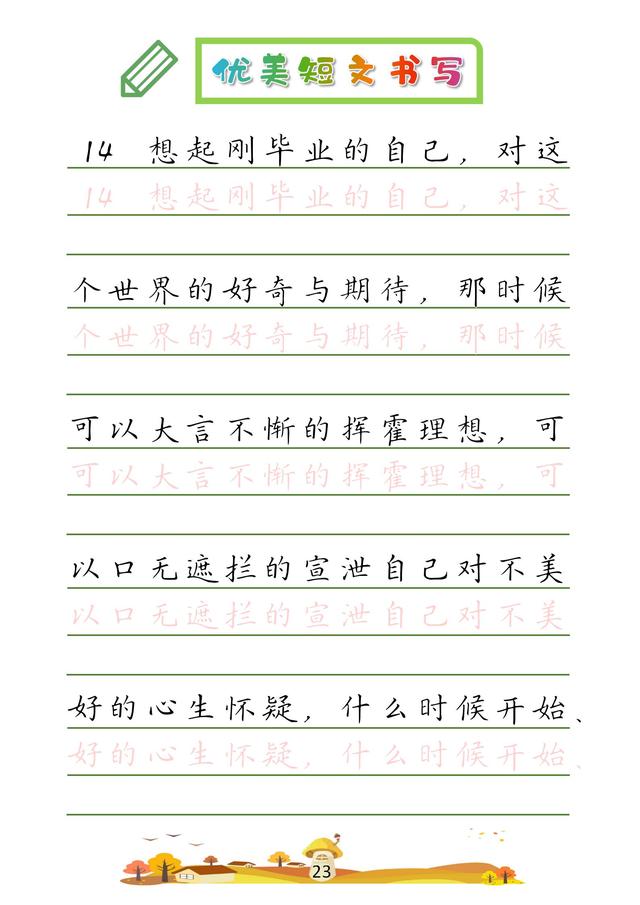 优美短文书写
14 想起刚毕业的自己，对这
14 想起刚毕业的自己，对这
个世界的好奇与期待，那时候
个世界的好奇与期待，那时候
可以大言不惭的挥霍理想，可
可以大言不惭的挥霍理想，可
以口无遮拦的宣泄自己对不美
以口无遮拦的宣泄自己对不美
好的心生怀疑，什么时候开始、
好的心生怀疑，什么时候开始、
23